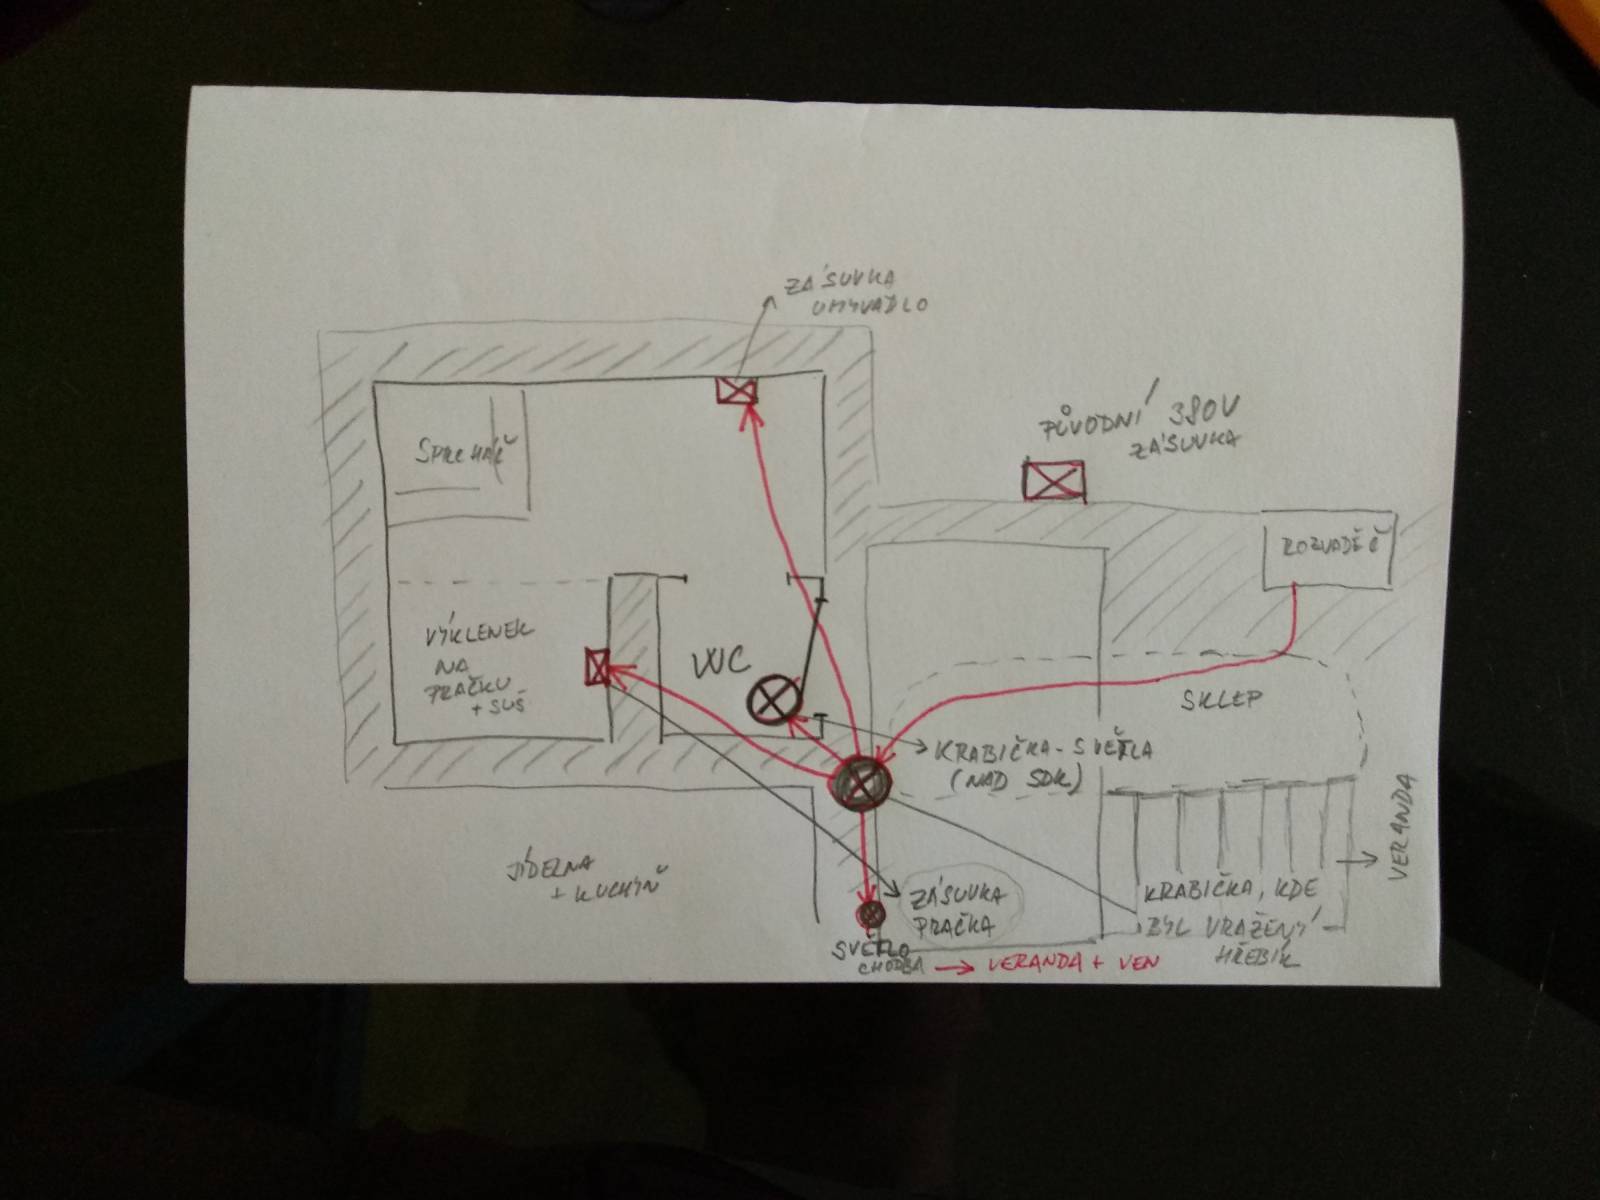 ZÁSUVKA
UMYVADLO
PŮVODNÍ 380V
ZÁSUVKA
SPRCHÁČ
ROZVADĚČ
VÝKLENEK
NA
PRAČKU
+ SUŠ
WC
SKLEP
KRABIČKA - SVĚTLA
(NAD SDK)
VERANDA
JÍDELNA
+ KUCHYŇ
ZÁSUVKA
PRAČKA
KRABIČKA, KDE
BYL VRAŽENÝ
HŘEBÍK
SVĚTLO
CHODBA → VERANDA + VEN